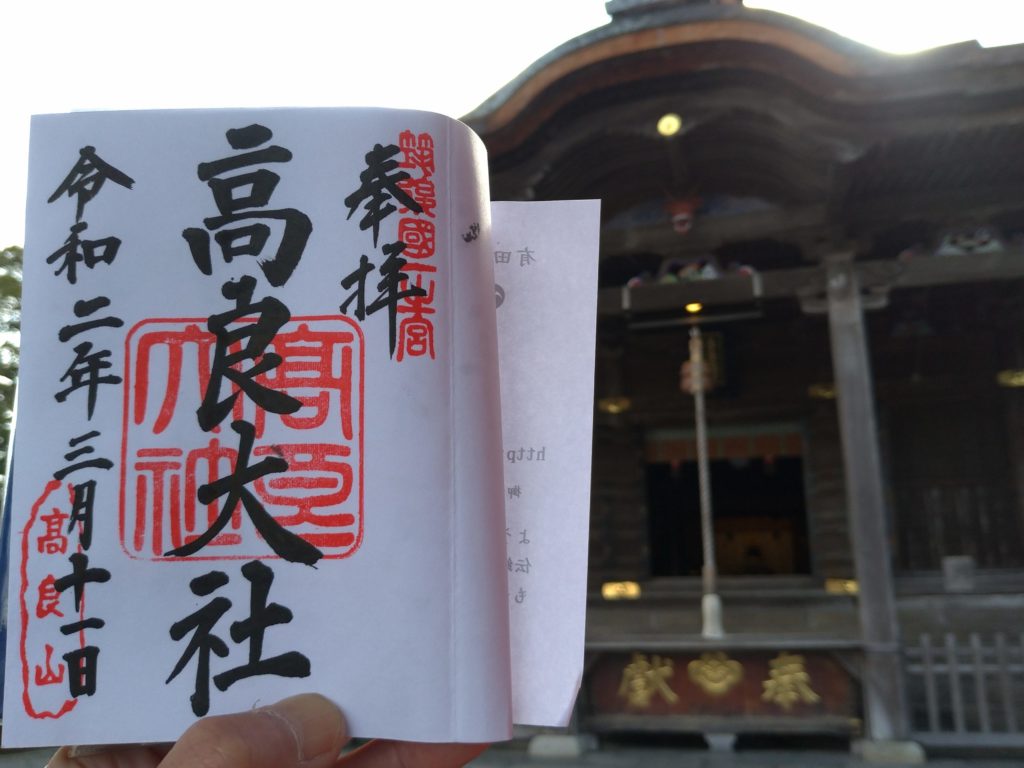 奉拝
筑後國一之宮
高良大社
高良大社
令和二年三月十一日
高良山
有田
http
御
よ
伝
も
奉献